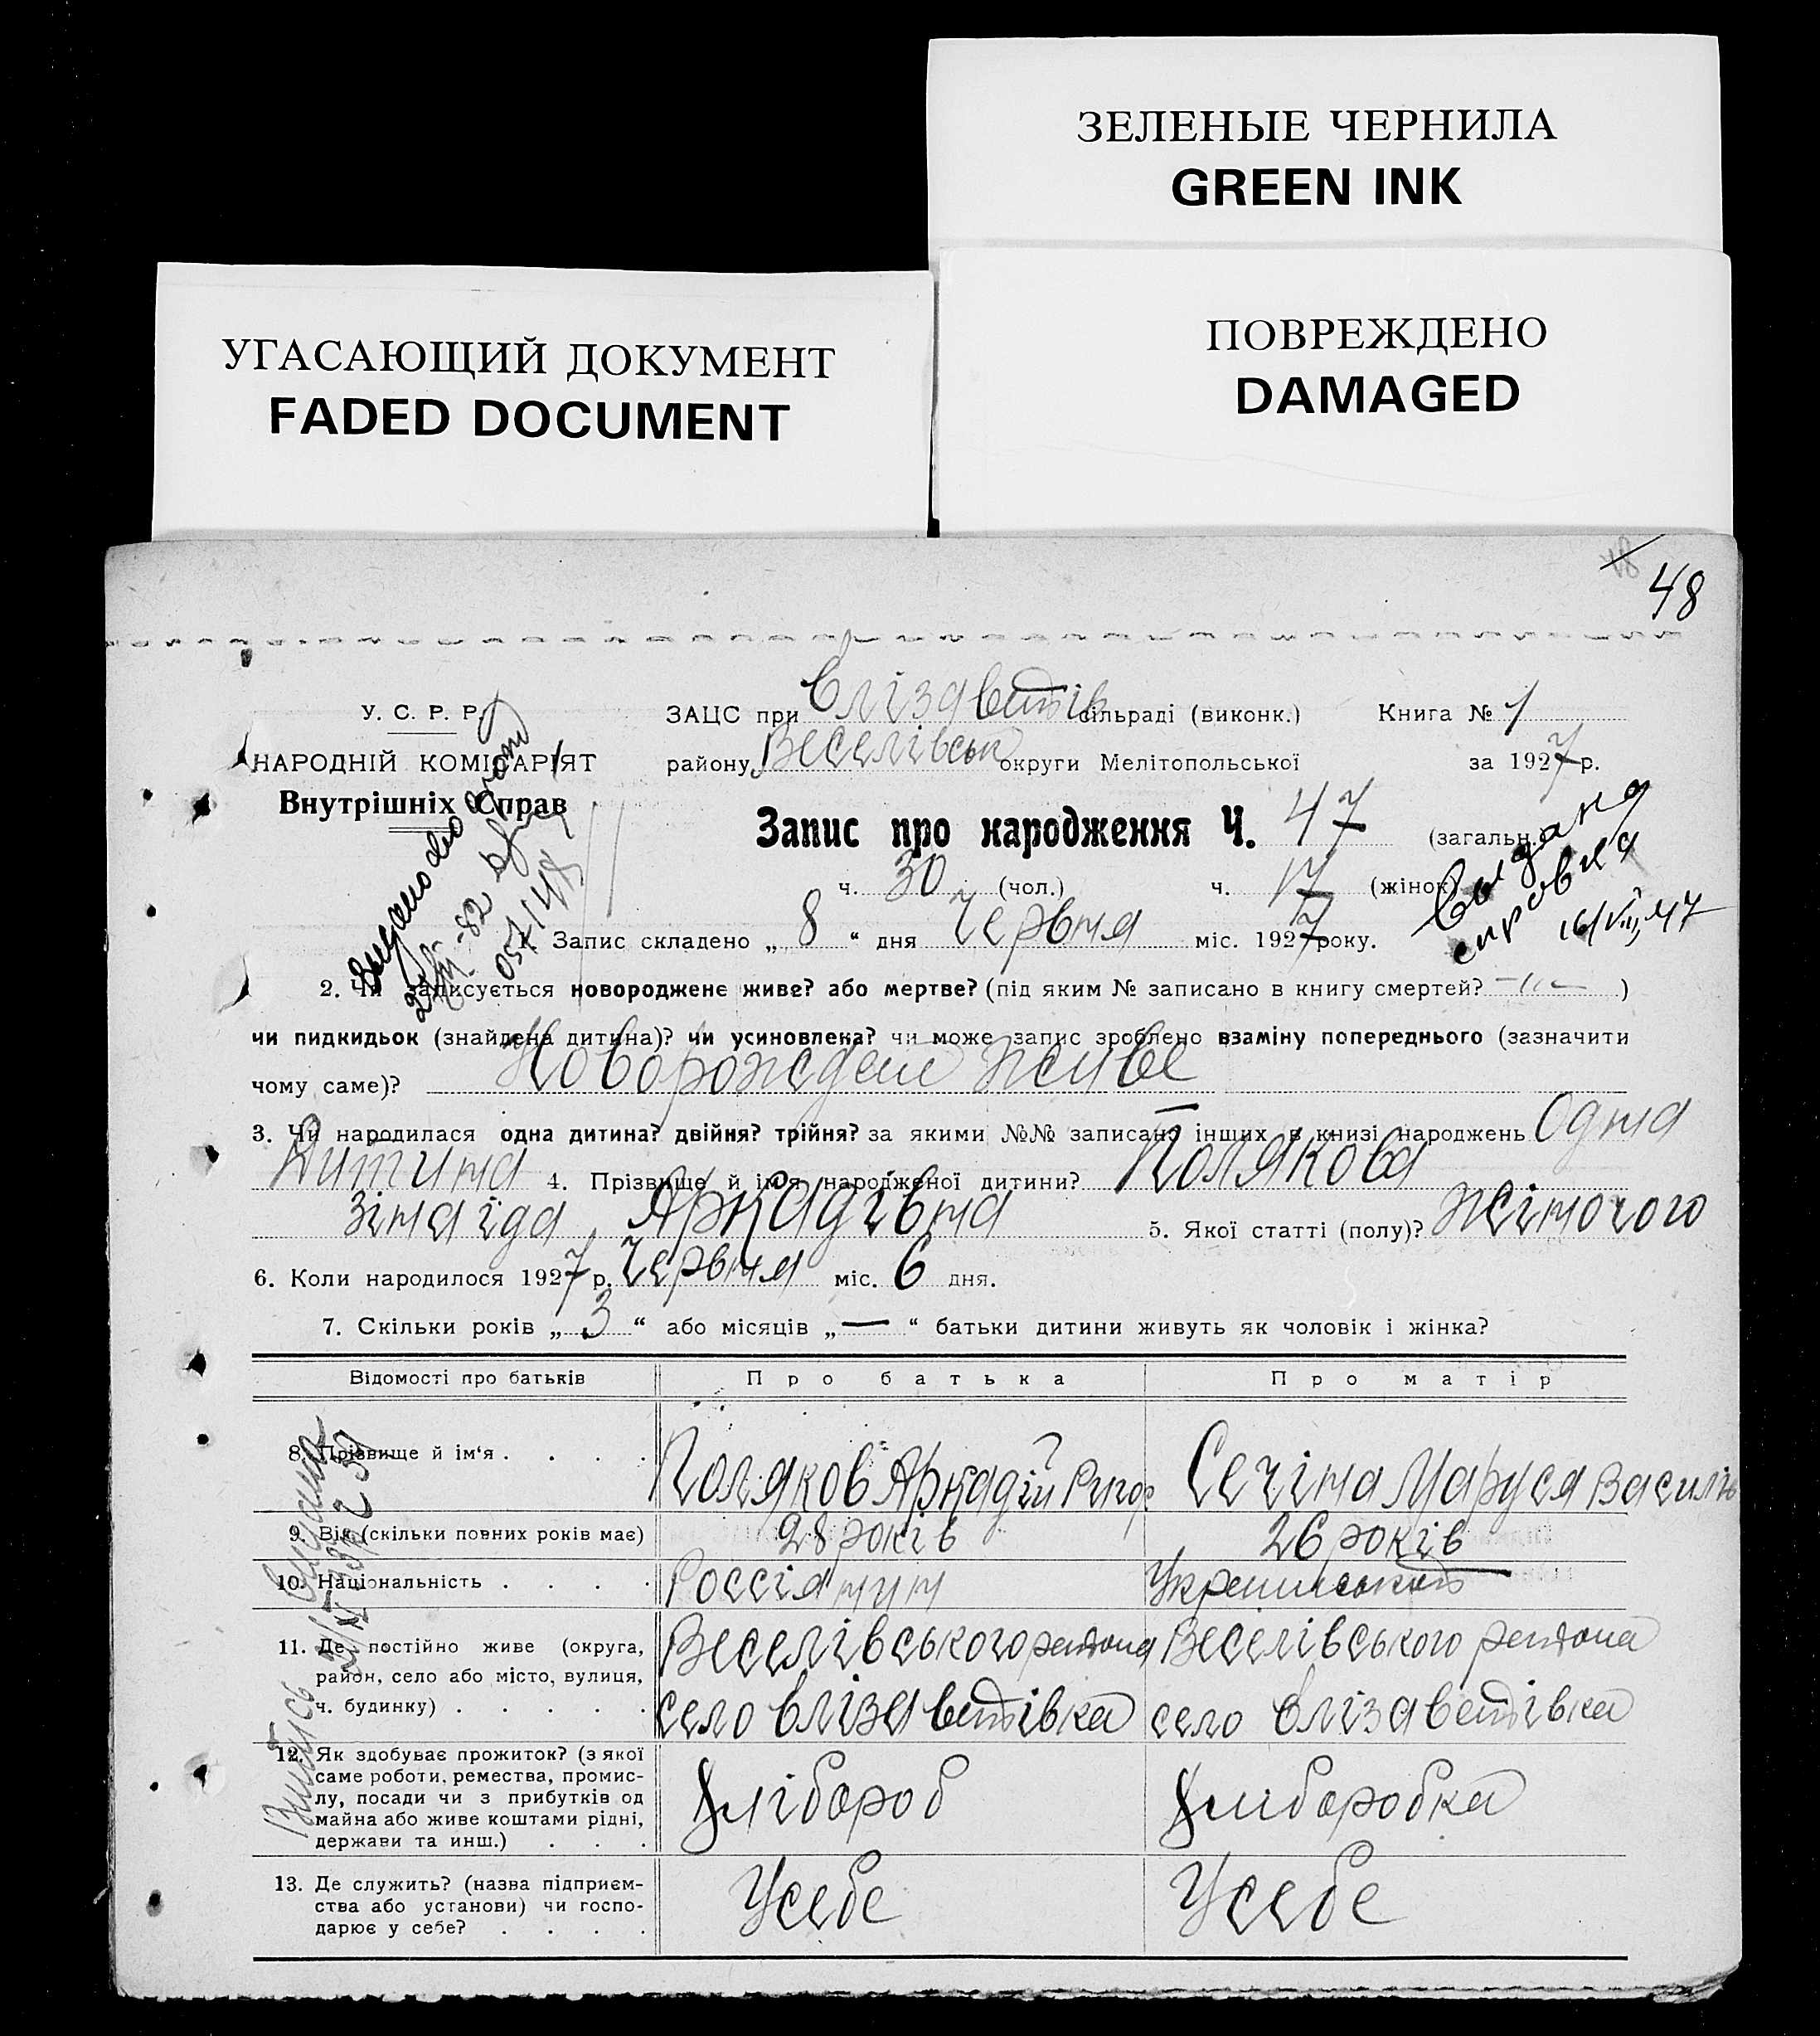 ЗЕЛЕНЫЕ ЧЕРНИЛА
GREEN INK
УГАСАЮЩИЙ ДОКУМЕНТ
FADED DOCUMENT
ПОВРЕЖДЕНО
DAMAGED
48
У. С. Р. Р.
НАРОДНІЙ КОМІСАРІЯТ
Внутрішніх Справ
ЗАЦС при Єлізаветів сільраді (виконк.) Книга № 1
району Веселівськ округи Мелітопольської за 1927 р.
Запис про народження Ч. 47 (загальн.
ч. 30 (чол.) ч. 17 (жінок)
Выдана
справка
16/VII 47
1. Запис складено „ 8 “ дня Червня міс. 1927 року.
2. Чи записується новороджене живе? або мертве? (під яким № записано в книгу смертей? )
чи пидкидьок (знайдена дитина)? чи усиновлена? чи може запис зроблено взаміну попереднього (зазначити
чому саме)? Новорождене живе
3. Чи народилася одна дитина? двійня? трійня? за якими №№ записано інших в книзі народжень Одна
Дитина 4. Прізвище й ім'я народженої дитини? Полякова
Зінаїда Аркадівна 5. Якої статті (полу)? Жіночого
6. Коли народилося 1927 р. Червня міс. 6 дня.
7. Скільки років „ 3 “ або місяців „ — “ батьки дитини живуть як чоловік і жінка?
Відомості про батьків Про батька Про матір
8. Прізвище й ім‘я . . . . Поляков Аркадій Григор Сечіна Маруся Василів
9. Вік (скільки повних років має) 28 років 26 років
10. Національність . . . . Россіянин
11. Де постійно живе (округа, район, село або місто, вулиця, ч. будинку) . . . . . Веселівського района село Єлізаветівка Веселівського района село Єлізаветівка
12. Як здобуває прожиток? (з якої саме роботи, ремества, промислу, посади чи з прибутків од майна або живе коштами рідні, держави та инш.) . . . Хлібороб Хліборобка
13. Де служить? (назва підприємства або установи) чи господарює у себе? . . . . У себе У себе